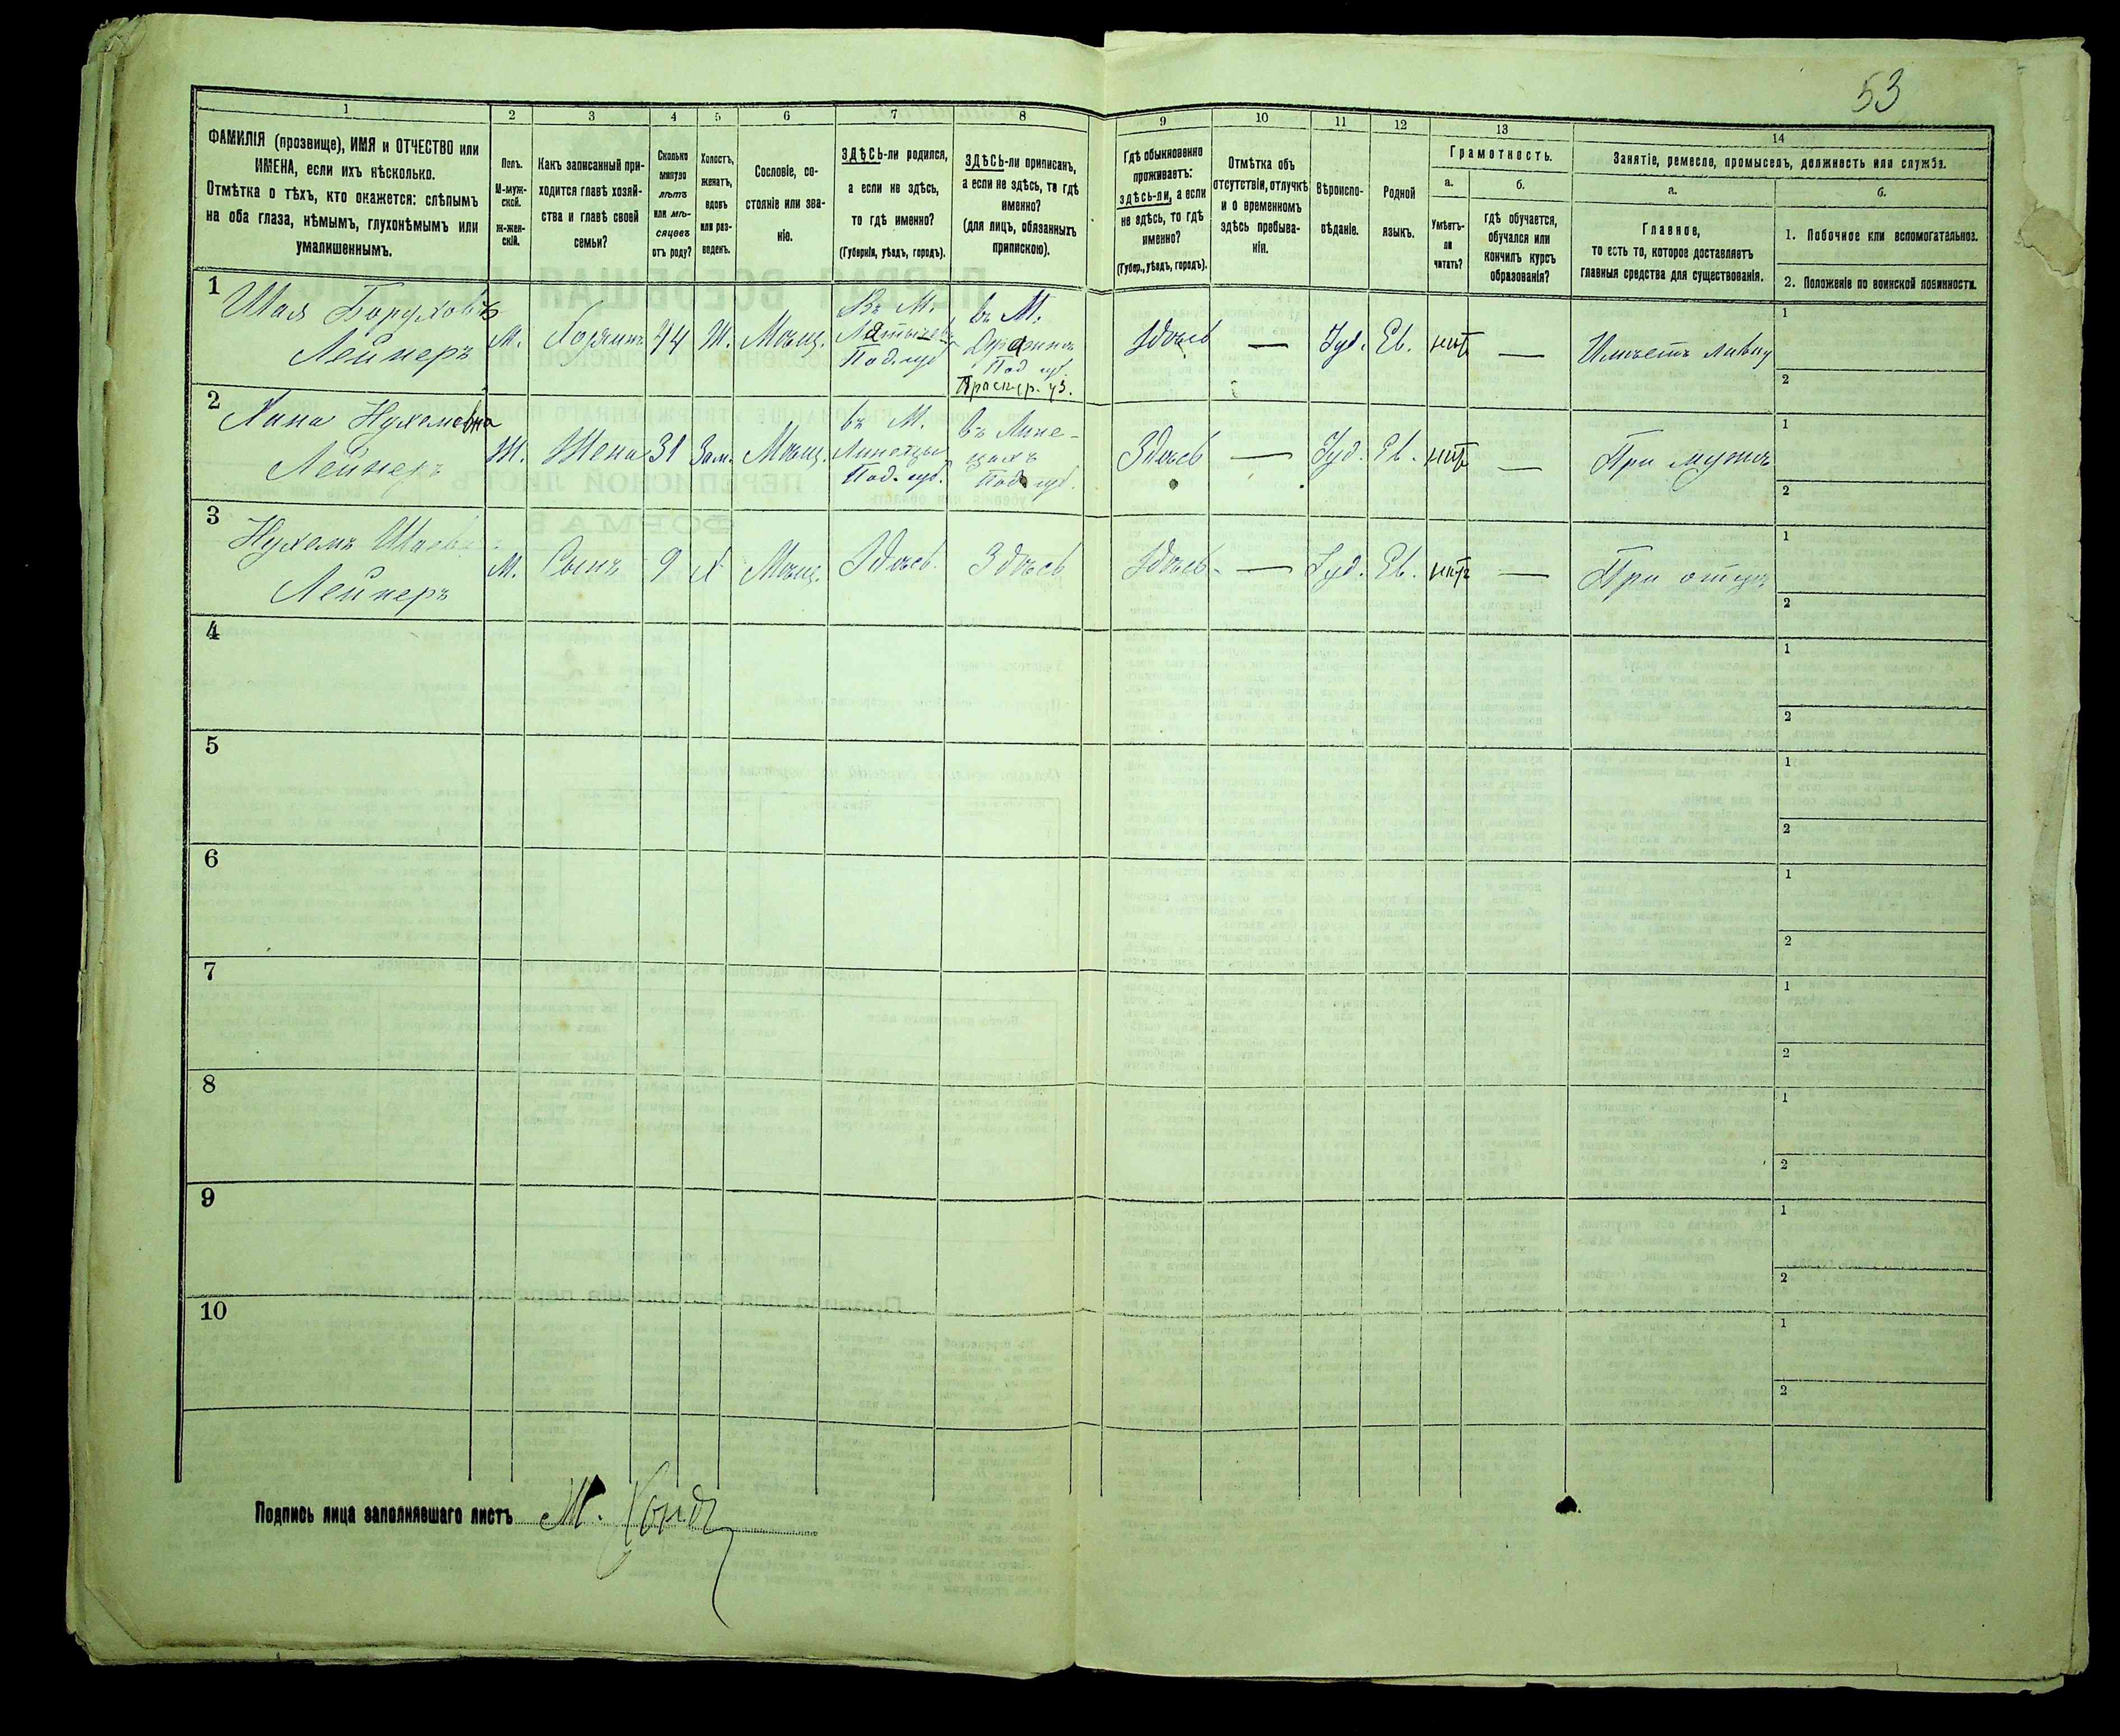 53
1
ФАМИЛІЯ (прозвище), ИМЯ и ОТЧЕСТВО или
ИМЕНА, если ихъ нѣсколько.
Отмѣтка о тѣхъ, кто окажется: слѣпымъ
на оба глаза, нѣмымъ, глухонѣмымъ или
умалишеннымъ.
2
Полъ.
М-муж-
ской.
ж-жен-
скій.
3
Какъ записанный при-
ходится главѣ хозяй-
ства и главѣ своей
семьи?
4
Сколько
минуло
лѣтъ
или мѣ-
сяцевъ
отъ роду?
5
Холостъ,
женатъ,
вдовъ
или раз-
веденъ.
6
Сословіе, со-
стояніе или зва-
ніе.
7
ЗДѢСЬ-ли родился,
а если не здѣсь,
то гдѣ именно?
(Губернія, уѣздъ, городъ).
8
ЗДѢСЬ-ли приписанъ,
а если не здѣсь, то гдѣ
именно?
(для лицъ, обязанныхъ
припискою).
9
Гдѣ обыкновенно
проживаетъ:
здѣсь-ли, а если
не здѣсь, то гдѣ
именно?
(Губер., уѣздъ, городъ).
10
Отмѣтка объ
отсутствіи, отлучкѣ
и о временномъ
здѣсь пребыва-
ніи.
11
Вѣроиспо-
вѣданіе.
12
Родной
языкъ.
13
Грамотность.
а.
Умѣетъ-
ли
читать?
б.
гдѣ обучается,
обучался или
кончилъ курсъ
образованія?
14
Занятіе, ремесло, промыселъ, должность или служба.
а.
Главное,
то есть то, которое доставляетъ
главныя средства для существованія.
б.
1. Побочное или вспомогательное.
2. Положеніе по воинской повинности.
1
Шая Боруховъ
Лейнеръ
М.
Хозяинъ
44
Ж.
Мѣщ.
Въ М.
Под. губ
въ М.
Под губ.
Здѣсь
—
Іуд.
Ев.
нѣтъ
—
Имѣетъ лавку
1
2
2
Хана Нухемовна
Лейнеръ
Ж.
Жена
31
Зам.
Мѣщ.
въ М.
Под. губ.
въ
Под губ.
Здѣсь
—
Іуд.
Ев.
нѣтъ
—
При мужѣ
1
2
3
Нухемъ
Лейнеръ
М.
Сынъ
9
Х
Мѣщ.
Здѣсь.
Здѣсь
Здѣсь.
—
Іуд.
Ев.
нѣтъ
—
При отцѣ
1
2
4
1
2
5
1
2
6
1
2
7
1
2
8
1
2
9
1
2
10
1
2
Подпись лица заполнявшаго листъ